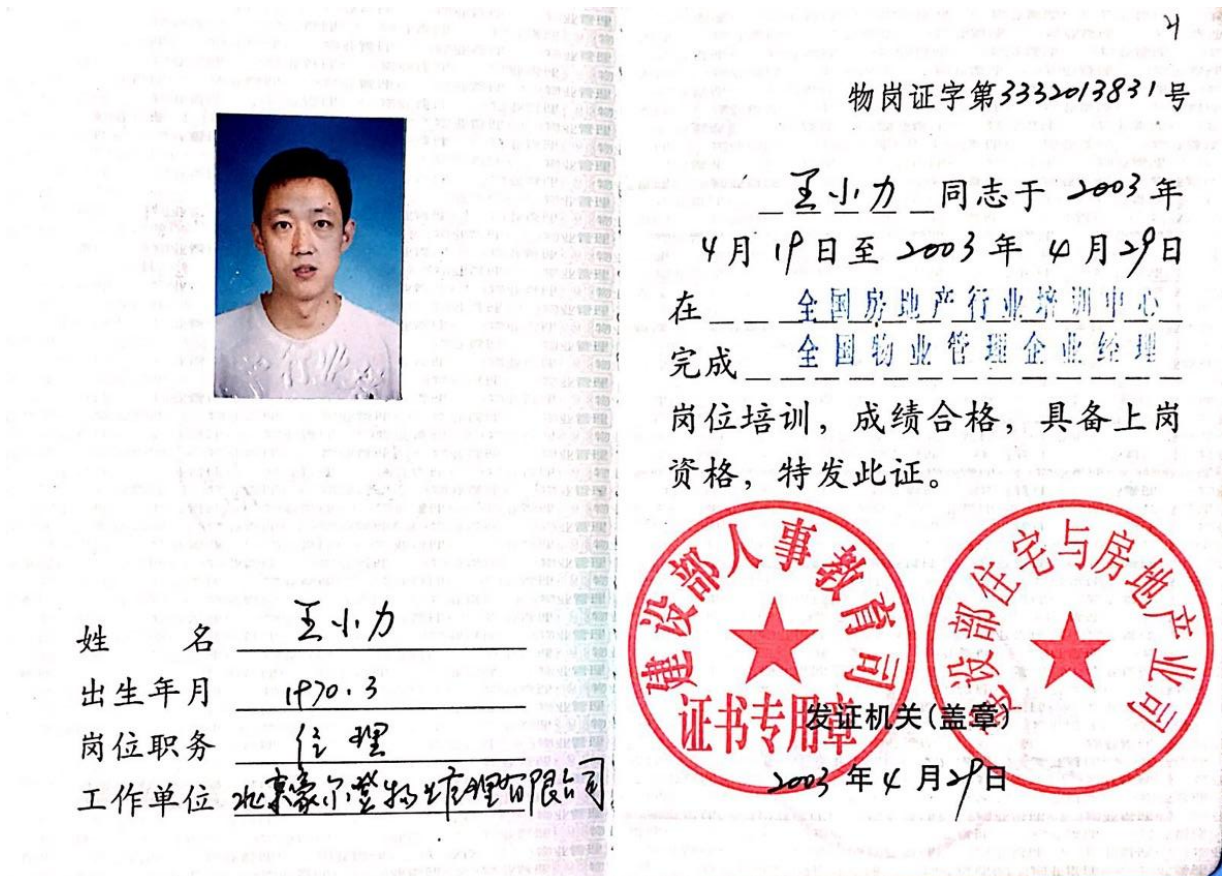 姓 名 王小力
出生年月 1970.3
岗位职务 经理
工作单位 北京豪尔登物业管理有限公司
4
物岗证字第3332013831号
王小力 同志于 2003 年
4月 19日至 2003 年 4 月29日
在 全国房地产行业培训中心
完成 全国物业管理企业经理
岗位培训，成绩合格，具备上岗
资格，特发此证。
建设部人事教育司
证书专用章
建设部住宅与房地产业司
发证机关(盖章)
2003 年 4 月 29日